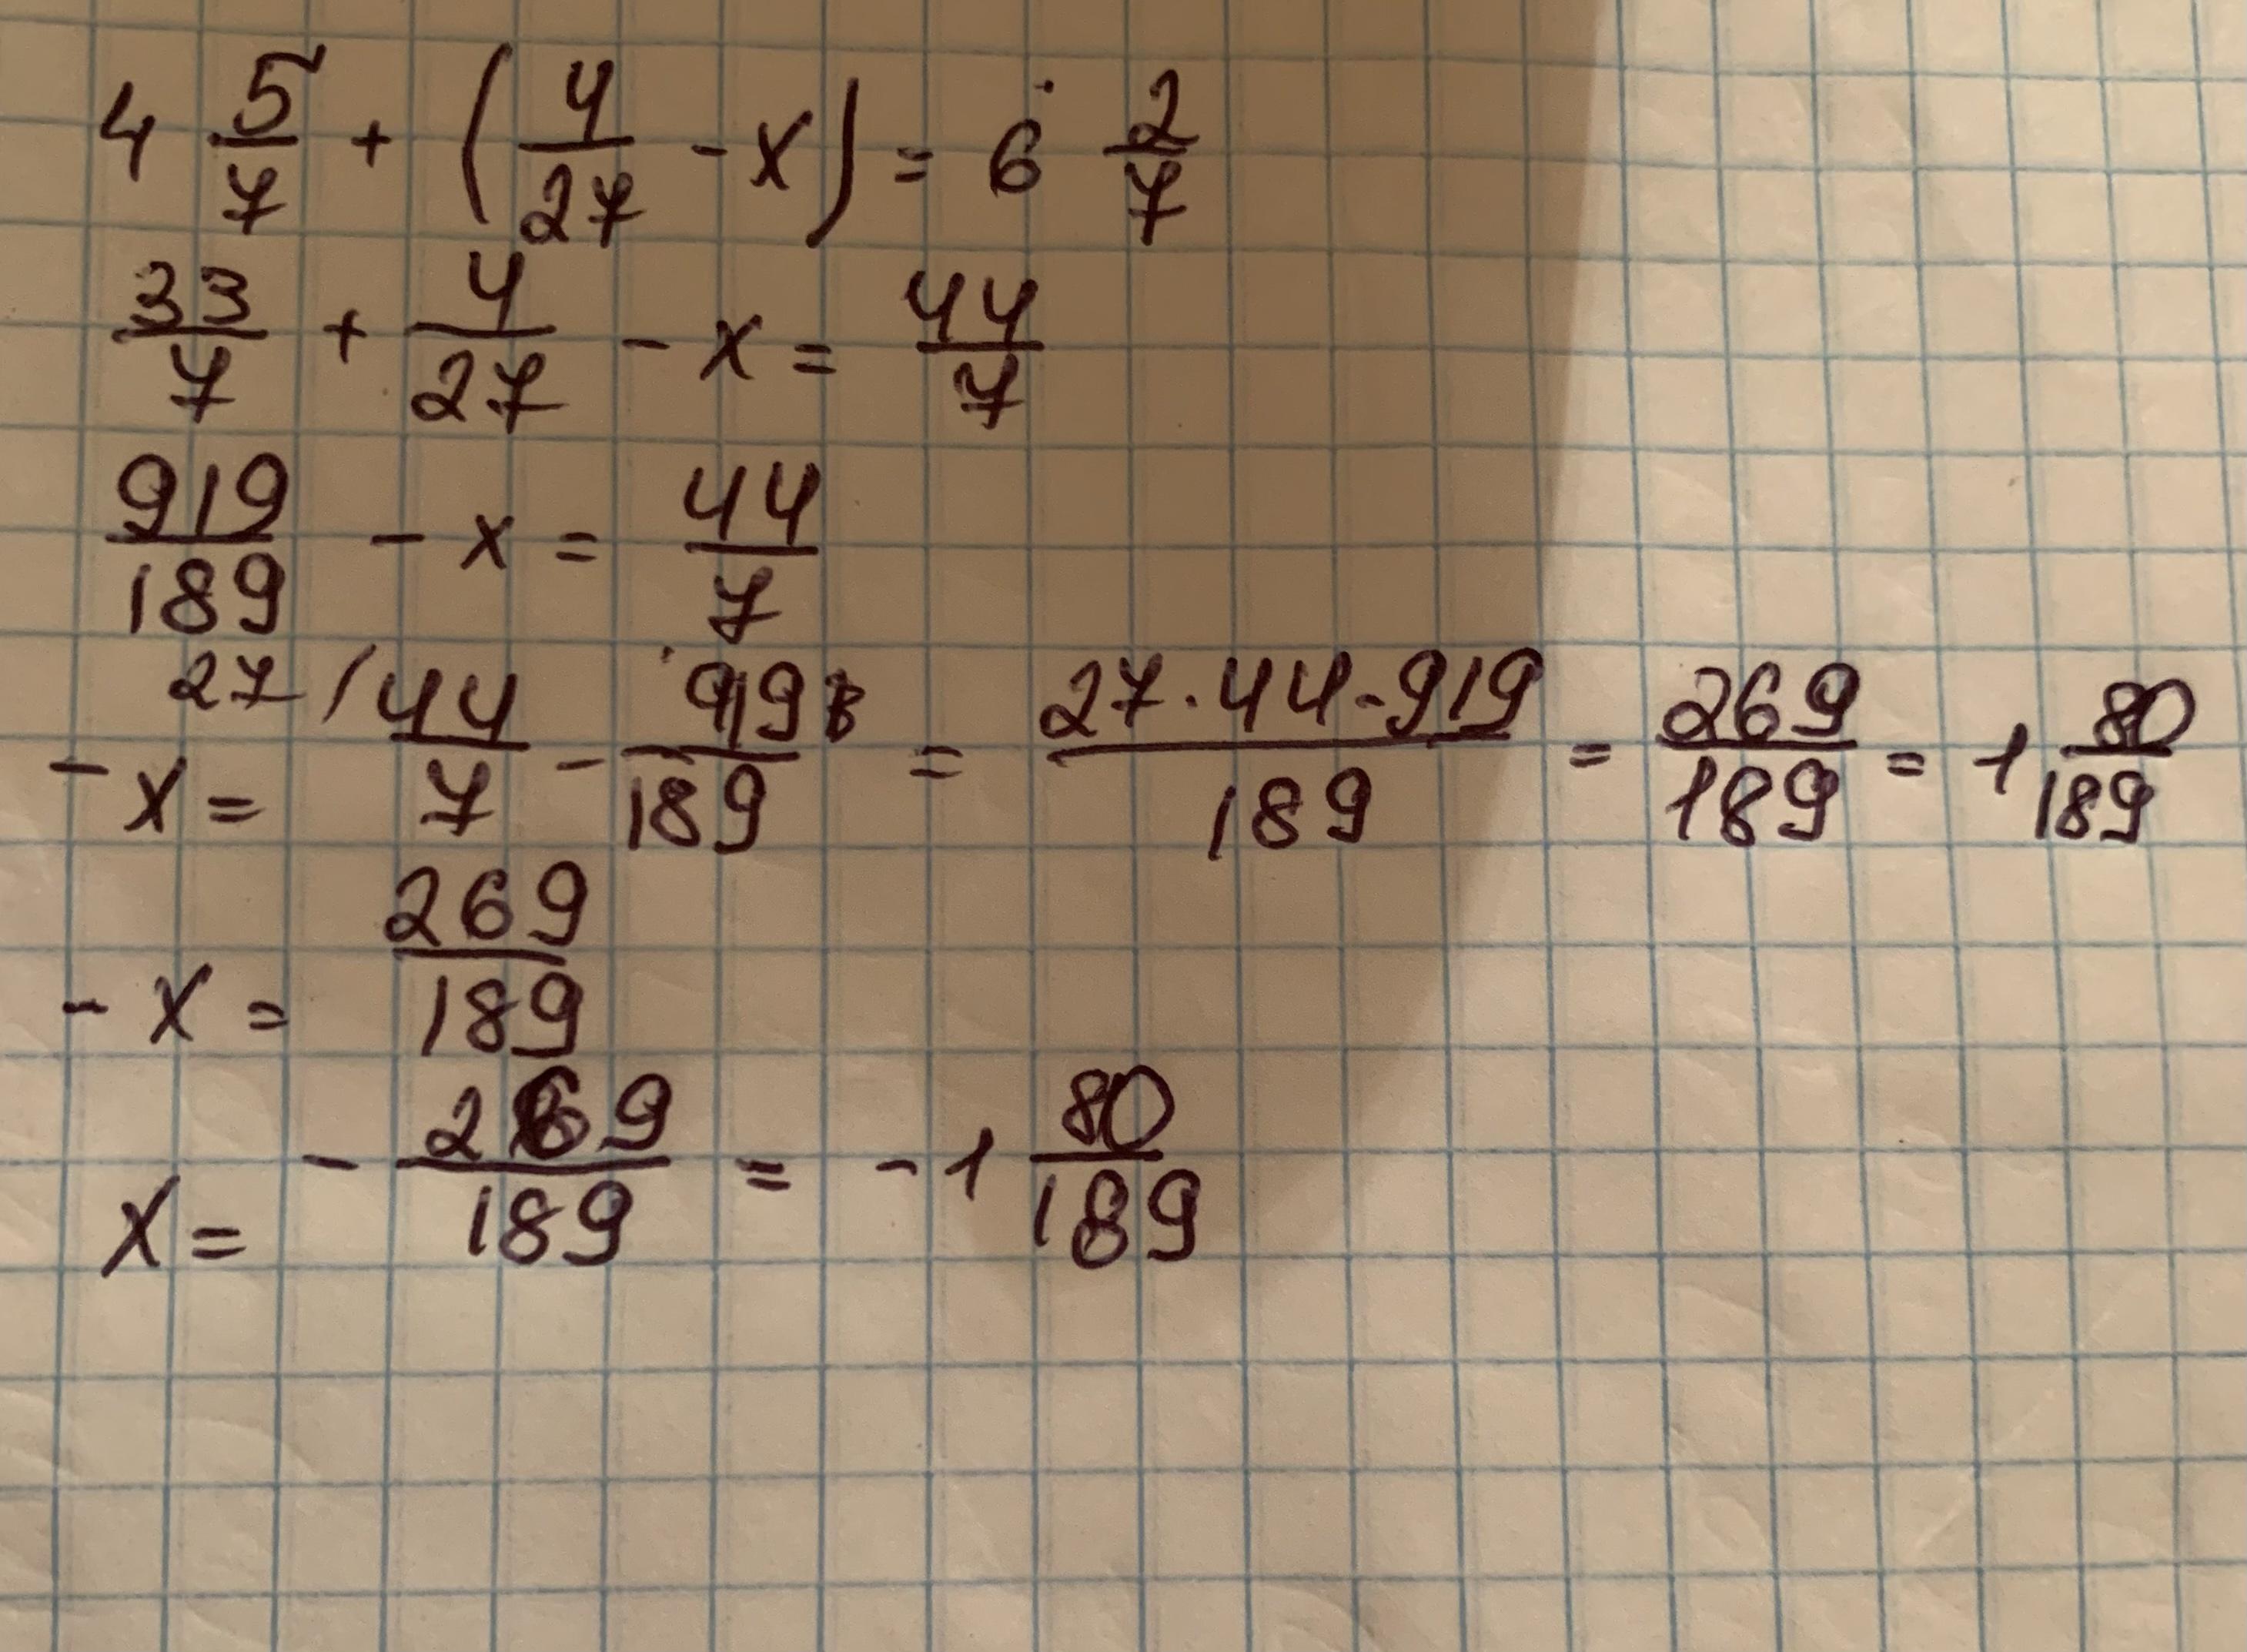 4 5/7 + (4/27 - x) = 6 2/7
33/7 + 4/27 - x = 44/7
919/189 - x = 44/7
- x = 27/ 44/7 - 919/189 = 27·44-919/189 = 269/189 = 1 80/189
- x = 269/189
x = - 269/189 = -1 80/189